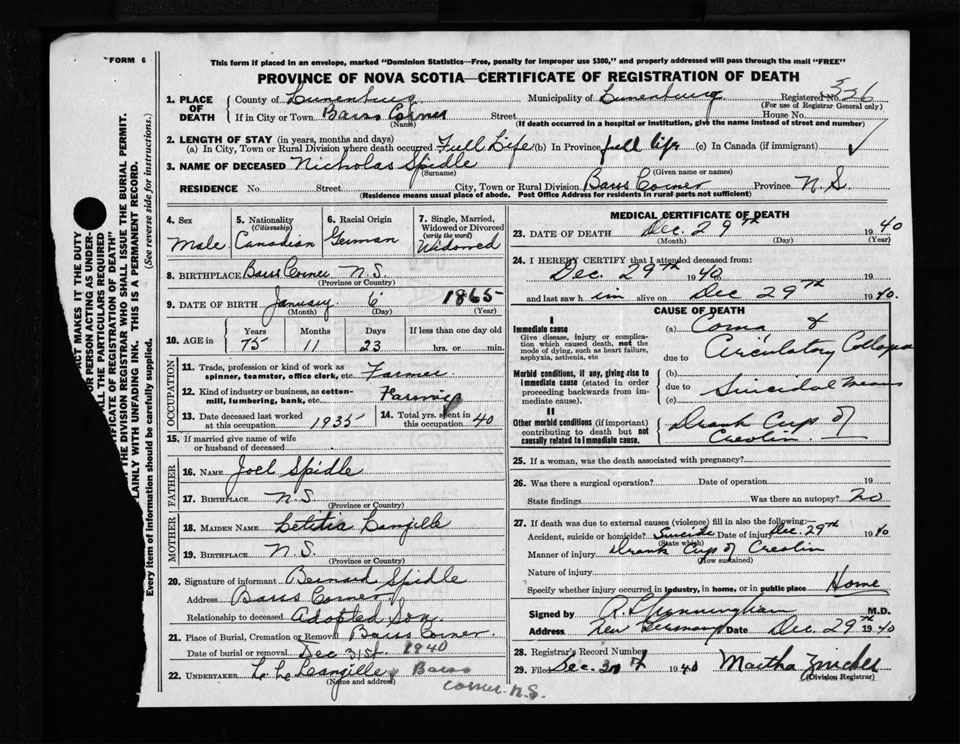 FORM 6
This form if placed in an envelope, marked "Dominion Statistics—Free, penalty for improper use $300," and properly addressed will pass through the mail "FREE"
PROVINCE OF NOVA SCOTIA—CERTIFICATE OF REGISTRATION OF DEATH
1. PLACE OF DEATH County of Lunenburg Municipality of Lunenburg Registered No. 326
(For use of Registrar General only)
If in City or Town Barss Corner Street House No.
(Name) (If death occurred in a hospital or institution, give the name instead of street and number)
2. LENGTH OF STAY (in years, months and days)
(a) In City, Town or Rural Division where death occurred Full Life (b) In Province full life (c) In Canada (if immigrant)
3. NAME OF DECEASED Nicholas Spidle
(Surname) (Given name or names)
RESIDENCE No. Street City, Town or Rural Division Barss Corner Province N.S.
(Residence means usual place of abode. Post Office Address for residents in rural parts not sufficient)
4. Sex Male
5. Nationality (Citizenship) Canadian
6. Racial Origin German
7. Single, Married, Widowed or Divorced (write the word) Widowed
8. BIRTHPLACE Barss Corner N.S.
(Province or Country)
9. DATE OF BIRTH January 6 1865
(Month) (Day) (Year)
10. AGE in Years 75 Months 11 Days 23 If less than one day old hrs. or min.
OCCUPATION
11. Trade, profession or kind of work as spinner, teamster, office clerk, etc. Farmer
12. Kind of industry or business, as cotton-mill, lumbering, bank, etc. Farming
13. Date deceased last worked at this occupation 1935
14. Total yrs. spent in this occupation 40
15. If married give name of wife or husband of deceased
FATHER
16. NAME Joel Spidle
17. BIRTHPLACE N.S.
(Province or Country)
MOTHER
18. MAIDEN NAME Letitia Langille
19. BIRTHPLACE N.S.
(Province or Country)
20. Signature of informant Bernard Spidle
Address Barss Corner
Relationship to deceased Adopted Son
21. Place of Burial, Cremation or Removal Barss Corner
Date of burial or removal Dec 31st 1940
22. UNDERTAKER L. L. Langille, Barss Corner. N.S.
(Name and address)
MEDICAL CERTIFICATE OF DEATH
23. DATE OF DEATH Dec. 29th 1940
(Month) (Day) (Year)
24. I HEREBY CERTIFY that I attended deceased from:
Dec. 29th 1940 19
and last saw him alive on Dec 29th 1940.
CAUSE OF DEATH
I
Immediate cause
Give disease, injury or complication which caused death, not the mode of dying, such as heart failure, asphyxia, asthenia, etc
(a) Coma & Circulatory Collapse
due to
Morbid conditions, if any, giving rise to immediate cause (stated in order proceeding backwards from immediate cause).
(b)
due to Suicidal means
(c)
II
Other morbid conditions (if important) contributing to death but not causally related to immediate cause.
Drank Cup of Creolin
25. If a woman, was the death associated with pregnancy?
26. Was there a surgical operation? Date of operation 19
State findings Was there an autopsy? No
27. If death was due to external causes (violence) fill in also the following:—
Accident, suicide or homicide? Suicide Date of injury Dec. 29th 1940
(State which)
Manner of injury Drank Cup of Creolin
(How sustained)
Nature of injury
Specify whether injury occurred in industry, in home, or in public place Home
Signed by Cunningham M.D.
Address New Germany Date Dec. 29th 1940
28. Registrar's Record Number
29. Filed Dec. 30th 1940 Martha Zwicker
(Division Registrar)
ACT MAKES IT THE DUTY
OR PERSON ACTING AS UNDER-
ALL THE PARTICULARS REQUIRED
CERTIFICATE OF REGISTRATION OF DEATH"
THE DIVISION REGISTRAR WHO SHALL ISSUE THE BURIAL PERMIT.
PLAINLY WITH UNFADING INK. THIS IS A PERMANENT RECORD.
Every item of information should be carefully supplied. (See reverse side for instructions.)